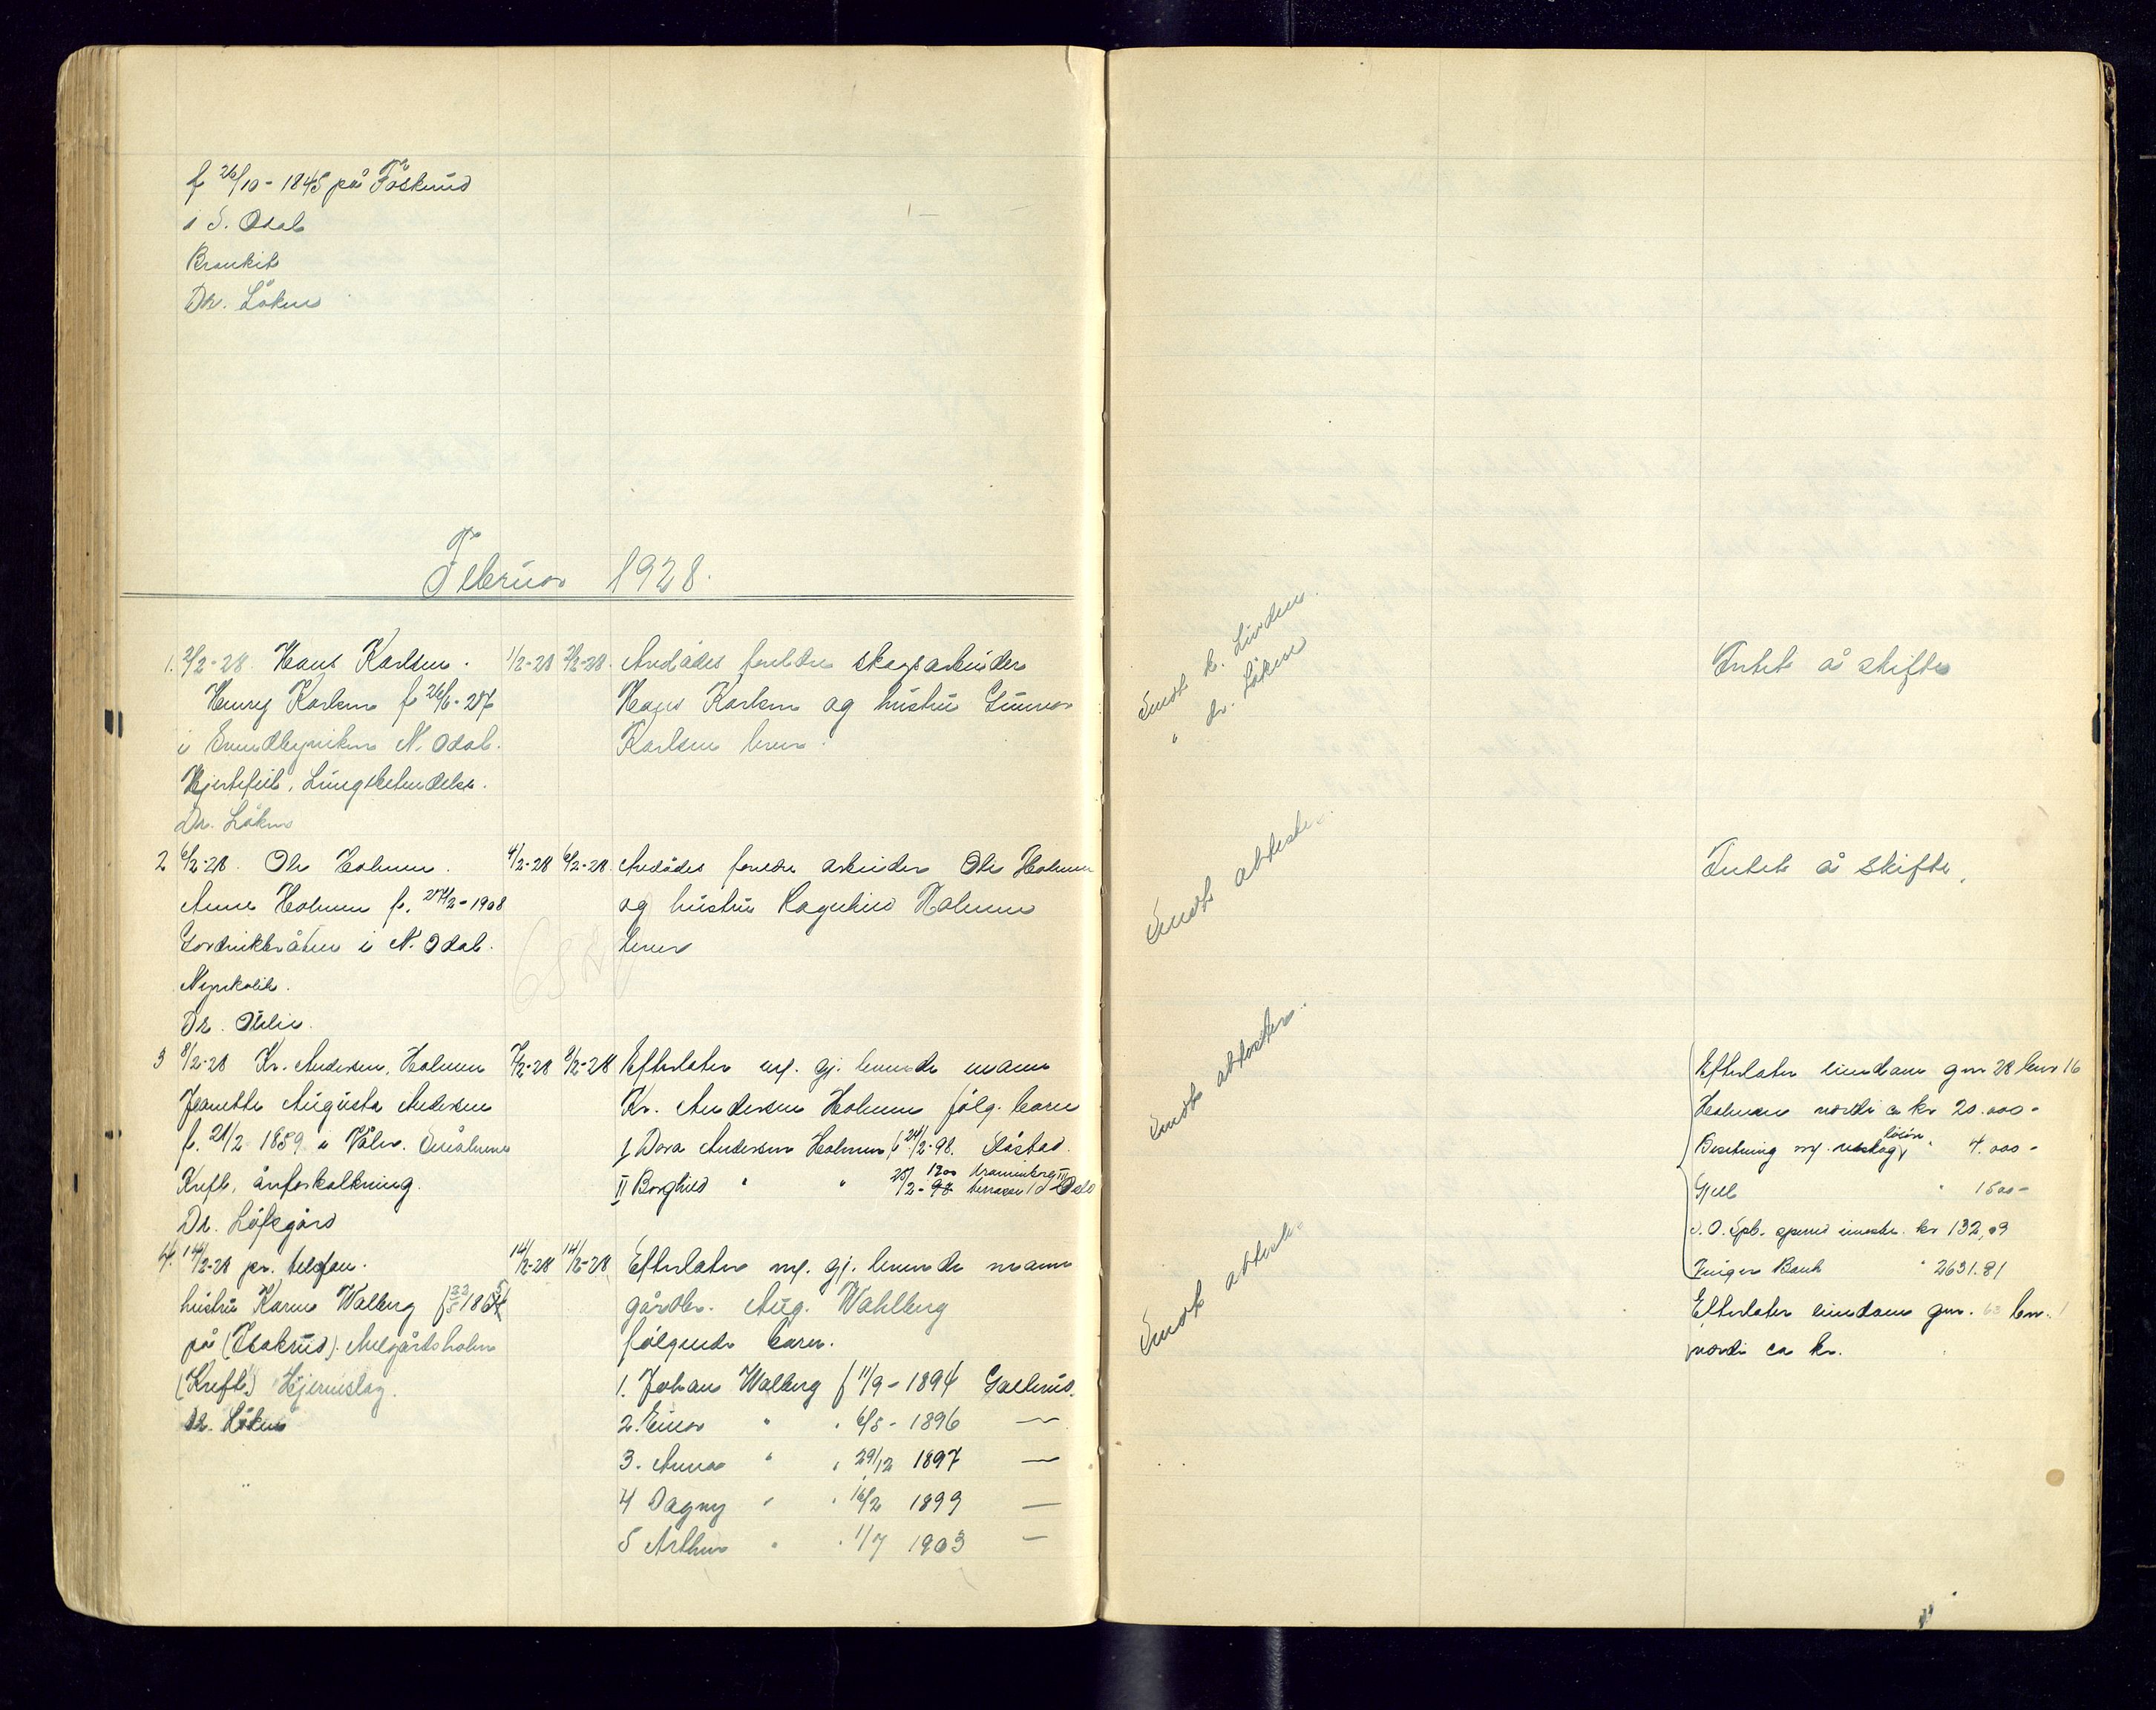 f 26/10 - 1845 på Föskerud
i S. Odal
Bronkit
Dr. Löken
Februar 1928.
1. 2/2-28. Hans Karlsen.
Henry Karlsen f 26/6-27
i N. Odal.
Hjertefeil, Lungebetendelse.
Dr. Löken
1/2-28 2/2-28.
Avdødes foreldre skogsarbeider
Hans Karlsen og hustru Gunnar
Karlsen lever.
Sendt L. Linden.
" dr. Löken
Intet å skifte
2 6/2-28. Ole Holmen.
Anne Holmen f. 27/2-1908
i N. Odal.
Dr.
4/2-28 6/2-28.
Avdødes foreldre arbeider Ole Holmen
og hustru Ragnhild Holmen
lever
Sendt attester.
Intet å skifte.
3 8/2-28 Kr. Andersen, Holmen
Jeanette Augusta Andersen
f. 21/2 1859 i Våler. Småbruker
Kreft, årforkalkning.
Dr. Löfsgård
7/2-28 8/2-28
Efterlater sig. gj. levende mann
Kr. Andersen Holmen følg. barn
I Dora Andersen Holmen f 24/2-98. Slåstad.
II Borghild " " 25/2-98 1900 Oslo
Sendt attester.
Efterlater eiendom gnr 28 bnr 16
Holmen verdi ca kr 20.000-
Besetning " 4.000-
Gjeld " 1500-
S. O. Spb. kr 132,09
Bank " 2631.81
4. 14/2-28 pr. telefon.
hustru Karen Walberg f 23/5 1864
på (Isakrud). Melgårdsholm
(Kreft) Hjerneslag.
Dr. Löken
14/2-28 14/2-28
Efterlater sig. gj. levende mann
gårdbr. Aug. Wahlberg
følgende barn.
1. Johan Walberg f 11/9 - 1894 Galterud.
2. Einar " " 6/5 - 1896 —
3. Anna " " 29/12 1897 —
4 Dagny " " 16/2 1899 —
5 Arthur " " 1/7 1903 —
Sendt attest.
Efterlater eiendom gnr. 63 bnr. 1
verdi ca kr.